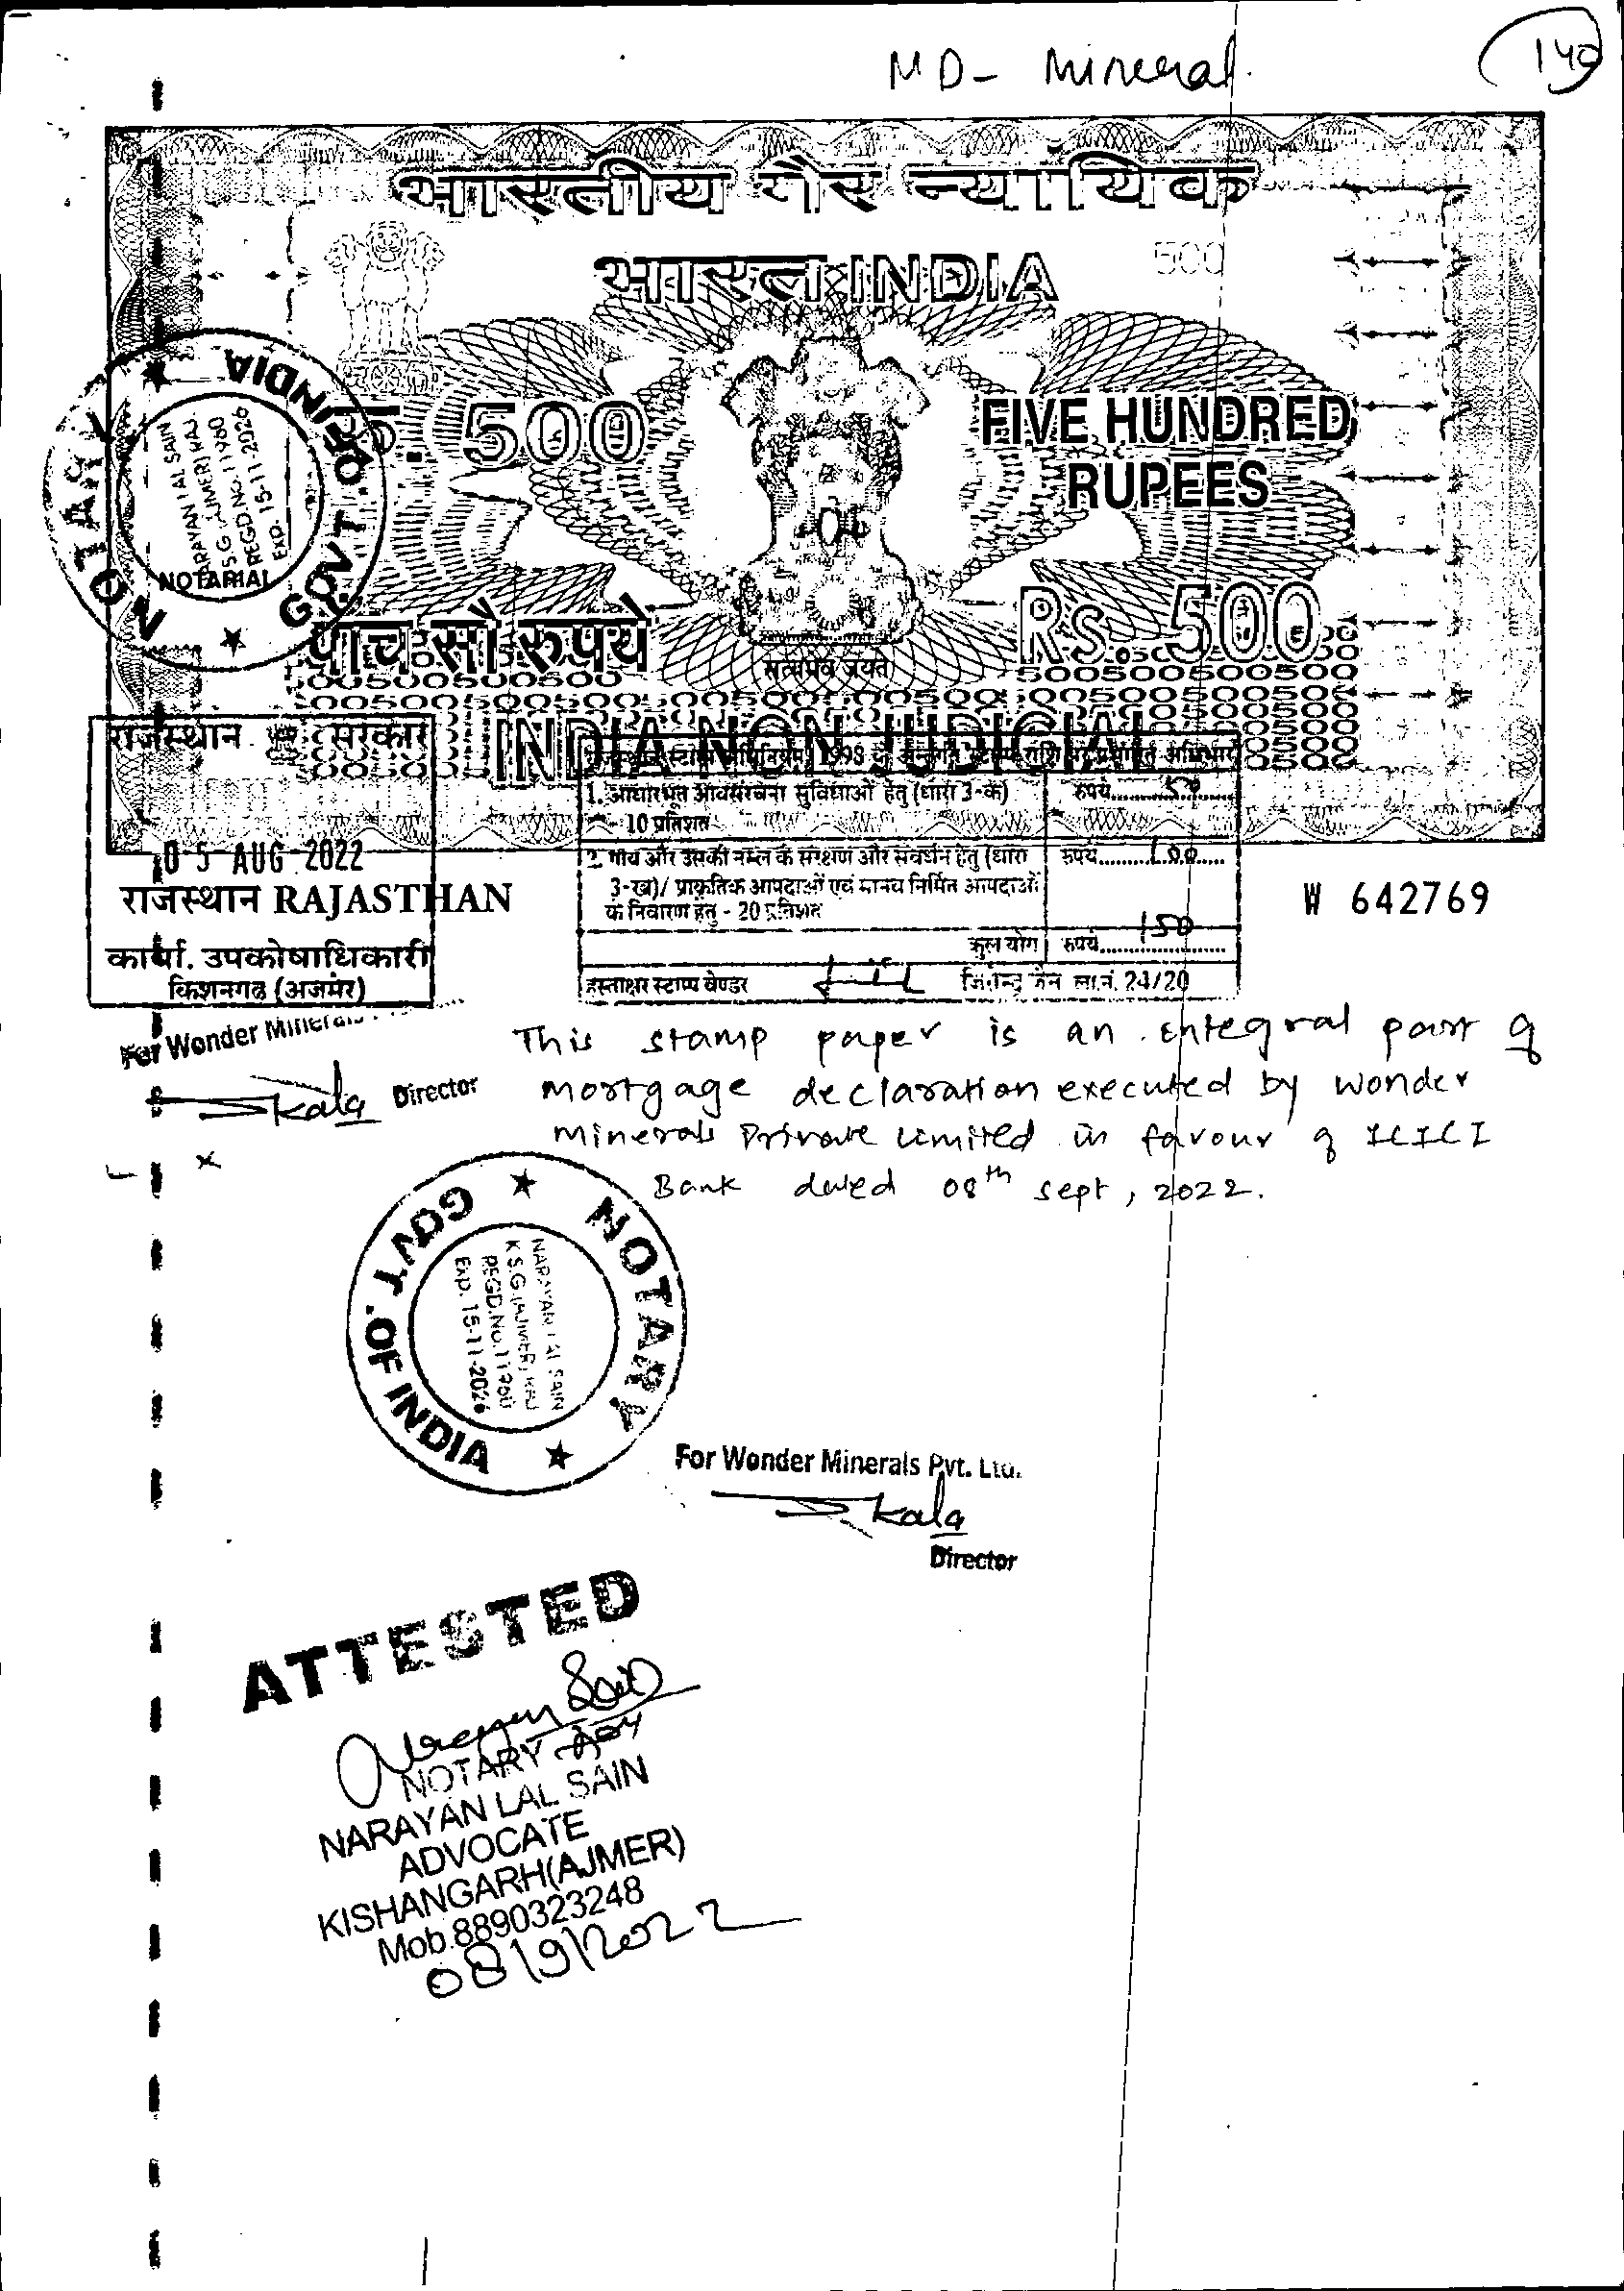 MD- Mineral
140
भारतीय गैर न्यायिक
भारत INDIA
500
रु. 500
FIVE HUNDRED
RUPEES
पाँच सौ रुपये
Rs. 500
सत्यमेव जयते
INDIA NON JUDICIAL
NOTARY
GOVT. OF INDIA
NARAYAN LAL SAIN
K.S.G. (AJMER) RAJ.
REGD.NO. 11960
EXP. 15-11-2026
NOTARIAL
राजस्थान सरकार
05 AUG 2022
राजस्थान RAJASTHAN
कार्या. उपकोषाधिकारी
किशनगढ (अजमेर)
राजस्थान स्टाम्प अधिनियम, 1998 के अन्तर्गत स्टाम्प राशि पर प्रभारित अधिभार
1. आधारभूत अवसंरचना सुविधाओं हेतु (धारा 3-क) रुपये 50
- 10 प्रतिशत
2. गाय और उसकी नस्ल के संरक्षण और संवर्धन हेतु (धारा रुपये 100
3-ख)/ प्राकृतिक आपदाओं एवं मानव निर्मित आपदाओं
के निवारण हेतु - 20 प्रतिशत
कुल योग रुपये 150
हस्ताक्षर स्टाम्प वेण्डर जितेन्द्र जैन ला.नं. 24/20
W 642769
For Wonder Minerals
S. Kala Director
This stamp paper is an integral part of
mortgage declaration executed by wonder
Minerals Private Limited in favour of ICICI
Bank dated 08th sept, 2022.
NOTARY
GOVT. OF INDIA
NARAYAN LAL SAIN
K.S.G. (AJMER) RAJ
REGD.NO.11960
EXP. 15-11-2026
For Wonder Minerals Pvt. Ltd.
S. Kala
Director
ATTESTED
Narayan Sain
NOTARY
NARAYAN LAL SAIN
ADVOCATE
KISHANGARH(AJMER)
Mob.8890323248
08/9/2022